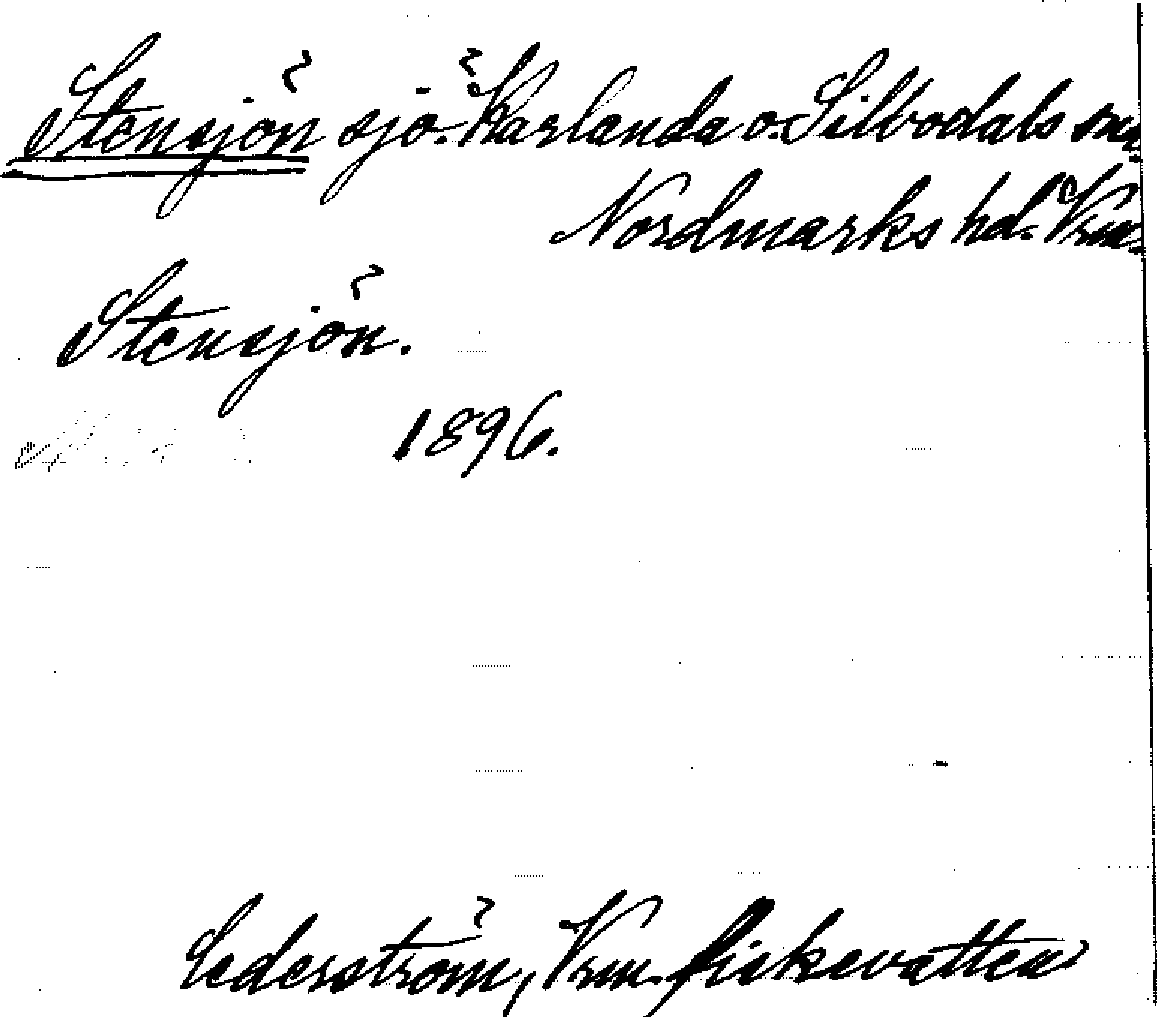 Stensjön sjö. Karlanda o. Silbodals snr
Nordmarks hd. Vrm.
Stensjön.
1896.
Cederström, Vrm. fiskevatten